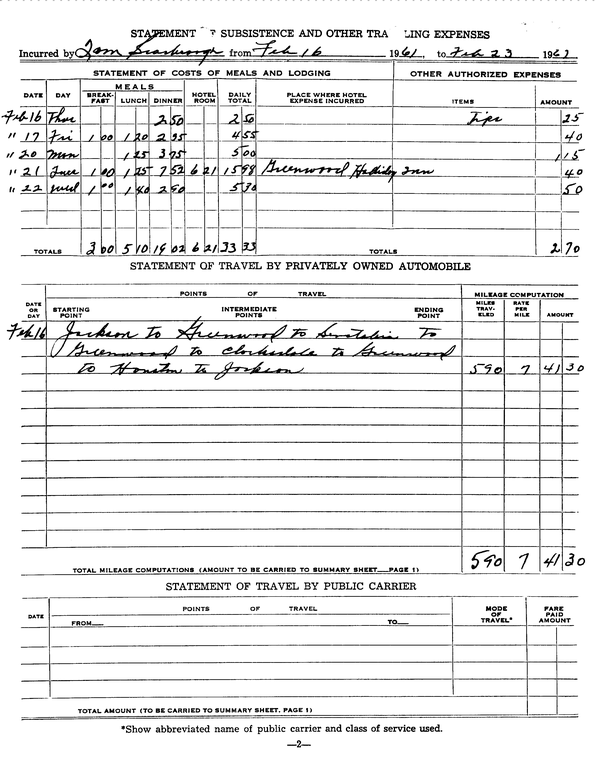 STATEMENT F SUBSISTENCE AND OTHER TRA LING EXPENSES
Incurred by Tom Scarbrough from Feb 16 1961, to Feb 23 1961
STATEMENT OF COSTS OF MEALS AND LODGING OTHER AUTHORIZED EXPENSES
DATE DAY MEALS BREAK-FAST LUNCH DINNER HOTEL ROOM DAILY TOTAL PLACE WHERE HOTEL EXPENSE INCURRED ITEMS AMOUNT
Feb 16 Thur 2 50 2 50 Tips 25
" 17 Fri 1 00 1 20 2 35 4 55 40
" 20 Mon 1 25 3 75 5 00 1 15
" 21 Tues 1 00 1 25 7 52 6 21 15 98 Greenwood Holliday Inn 40
" 22 Wed 1 00 1 40 2 90 5 30 50
TOTALS 3 00 5 10 19 02 6 21 33 33 TOTALS 2 70
STATEMENT OF TRAVEL BY PRIVATELY OWNED AUTOMOBILE
DATE OR DAY POINTS OF TRAVEL MILEAGE COMPUTATION
STARTING POINT INTERMEDIATE POINTS ENDING POINT MILES TRAV-ELED RATE PER MILE AMOUNT
Feb 16 Jackson to Greenwood to to
Greenwood to Clarksdale to Greenwood
to Houston to Jackson 590 7 41 30
TOTAL MILEAGE COMPUTATIONS (AMOUNT TO BE CARRIED TO SUMMARY SHEET PAGE 1) 590 7 41 30
STATEMENT OF TRAVEL BY PUBLIC CARRIER
DATE POINTS OF TRAVEL MODE OF TRAVEL* FARE PAID AMOUNT
FROM TO
TOTAL AMOUNT (TO BE CARRIED TO SUMMARY SHEET, PAGE 1)
*Show abbreviated name of public carrier and class of service used.
—2—